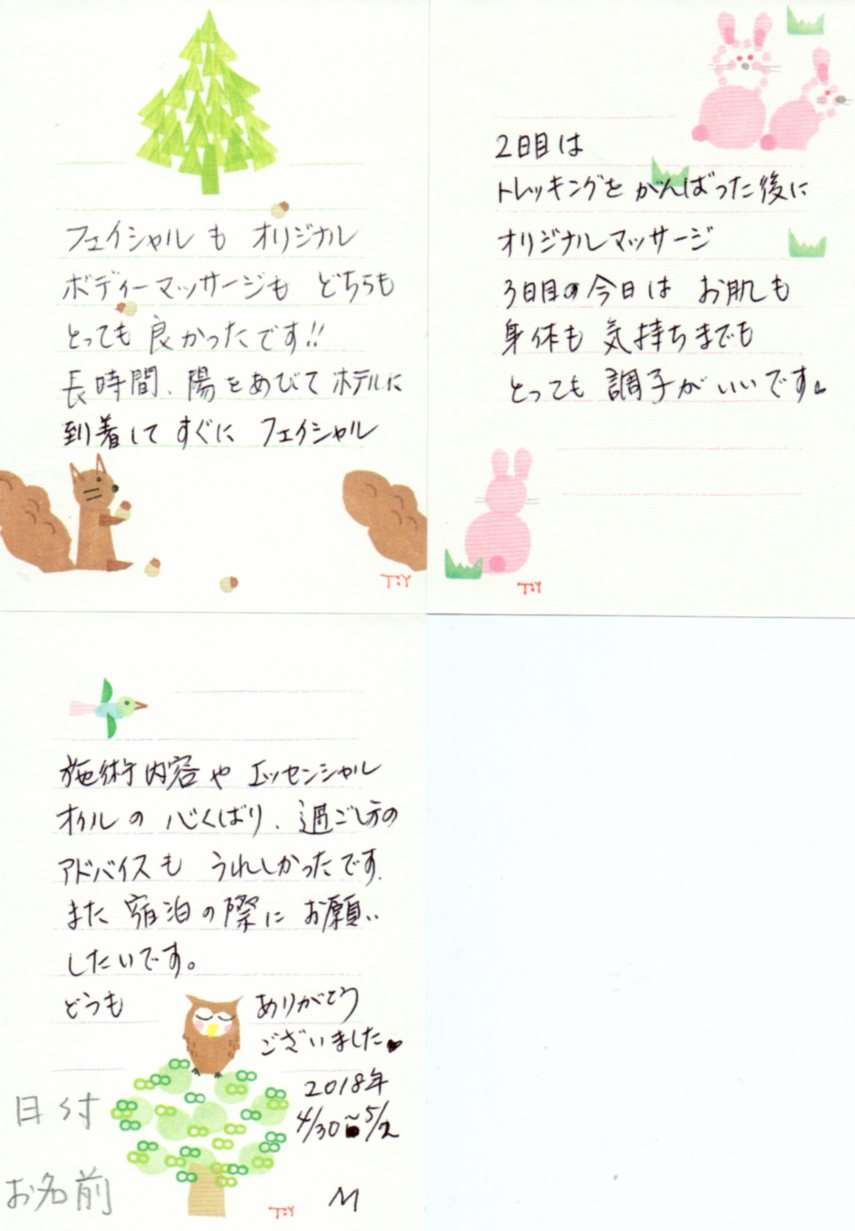 フェイシャルも オリジナル
ボディーマッサージも どちらも
とっても 良かったです!!
長時間、陽をあびて ホテルに
到着して すぐに フェイシャル
T:Y
2日目は
トレッキングを がんばった後に
オリジナルマッサージ
3日目の今日は お肌も
身体も 気持ちまでも
とっても 調子がいいです♥
T:Y
施術内容や エッセンシャル
オイルの 心くばり、過ごし方の
アドバイスも うれしかったです。
また 宿泊の際に お願い
したいです。
どうも ありがとう
ございました♥
2018年
4/30~5/2
日付
お名前
M
T:Y